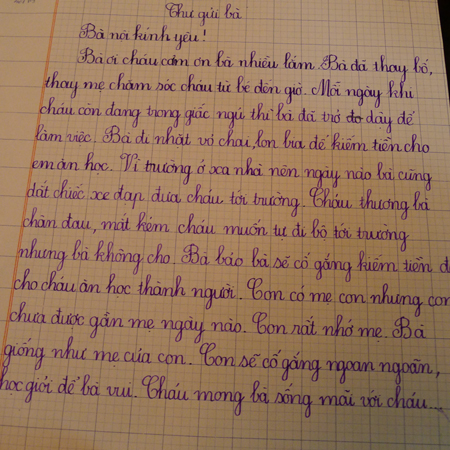 Thư gửi bà
Bà nội kính yêu!
Bà ơi cháu cảm ơn bà nhiều lắm. Bà đã thay bố,
thay mẹ chăm sóc cháu từ bé đến giờ. Mỗi ngày khi
cháu còn đang trong giấc ngủ thì bà đã trở dậy để
làm việc. Bà đi nhặt vỏ chai, lon bia để kiếm tiền cho
em ăn học. Vì trường ở xa nhà nên ngày nào bà cũng
dắt chiếc xe đạp đưa cháu tới trường. Cháu thương bà
chân đau, mắt kém cháu muốn tự đi bộ tới trường
nhưng bà không cho. Bà bảo bà sẽ cố gắng kiếm tiền đ
cho cháu ăn học thành người. Con có mẹ con nhưng con
chưa được gần mẹ ngày nào. Con rất nhớ mẹ. Bà
giống như mẹ của con. Con sẽ cố gắng ngoan ngoãn,
học giỏi để bà vui. Cháu mong bà sống mãi với cháu...